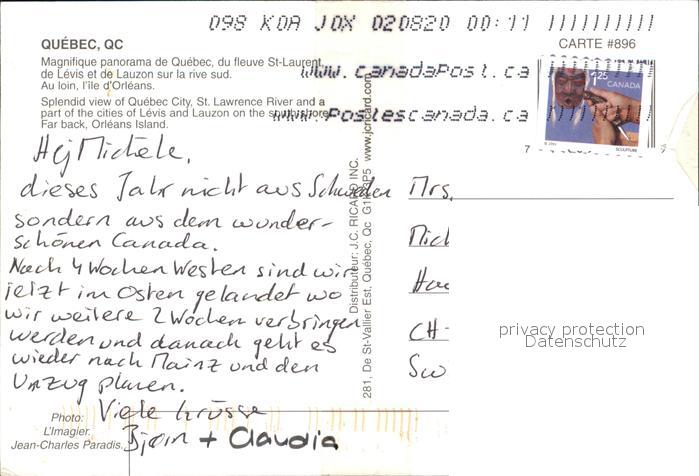 098 K0A J0X 020820 00:11
QUÉBEC, QC
CARTE #896
Magnifique panorama de Québec, du fleuve St-Laurent,
de Lévis et de Lauzon sur la rive sud.
Au loin, l'île d'Orléans.
www.canadaPost.ca
1.25 CANADA
Splendid view of Québec City, St. Lawrence River and a
part of the cities of Lévis and Lauzon on the south shore.
Far back, Orléans Island.
www.Postescanada.ca
SCULPTURE
7 7
Hej Michele,
dieses Jahr nicht aus Schweden
sondern aus dem wunder-
schönen Canada.
Nach 4 Wochen Westen sind wir
jetzt im Osten gelandet wo
wir weitere 2 Wochen verbringen
werden und danach geht es
wieder nach Mainz und den
Umzug planen.
Viele Grüsse
Bjorn + Claudia
Photo:
L'Imagier,
Jean-Charles Paradis.
Distributeur: J.C. RICARD INC.
281, De St-Vallier Est, Québec, Qc G1K 3P5 www.jcricard.com
Mrs.
Mich
CH-
privacy protection
Datenschutz